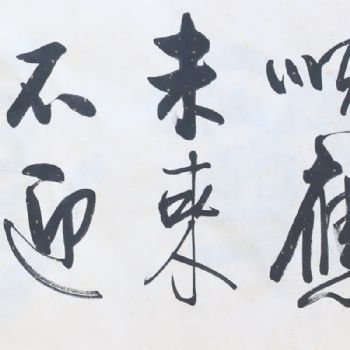 順應
未來
不迎